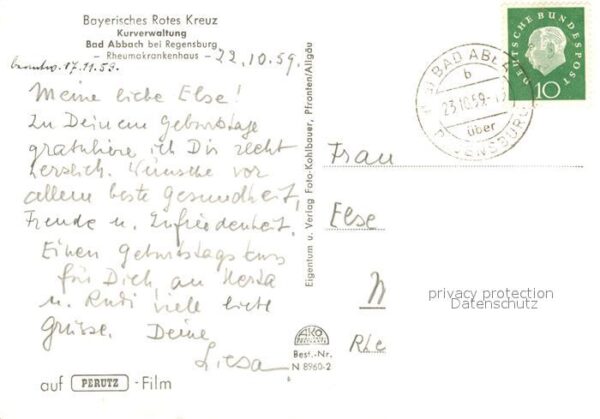 Bayerisches Rotes Kreuz
Kurverwaltung
Bad Abbach bei Regensburg
- Rheumakrankenhaus -
22.10.59.
17.11.59.
Meine liebe Else!
Zu Deinem Geburtstage
gratuliere ich Dir recht
herzlich. Wünsche vor
allem beste Gesundheit,
Freude u. Zufriedenheit.
Einen Geburtstagskuss
für Dich, an Herta
u. Rudi viele liebe
Grüsse. Deine
Liesa
auf PERUTZ -Film
Eigentum u. Verlag Foto-Kohlbauer, Pfronten/Allgäu
AKO
Best.-Nr.
N 8960-2
BAD ABB
b
23.10.59.
über
REGENSBURG
DEUTSCHE BUNDESPOST
10
Frau
Else
N
Rhe
privacy protection
Datenschutz